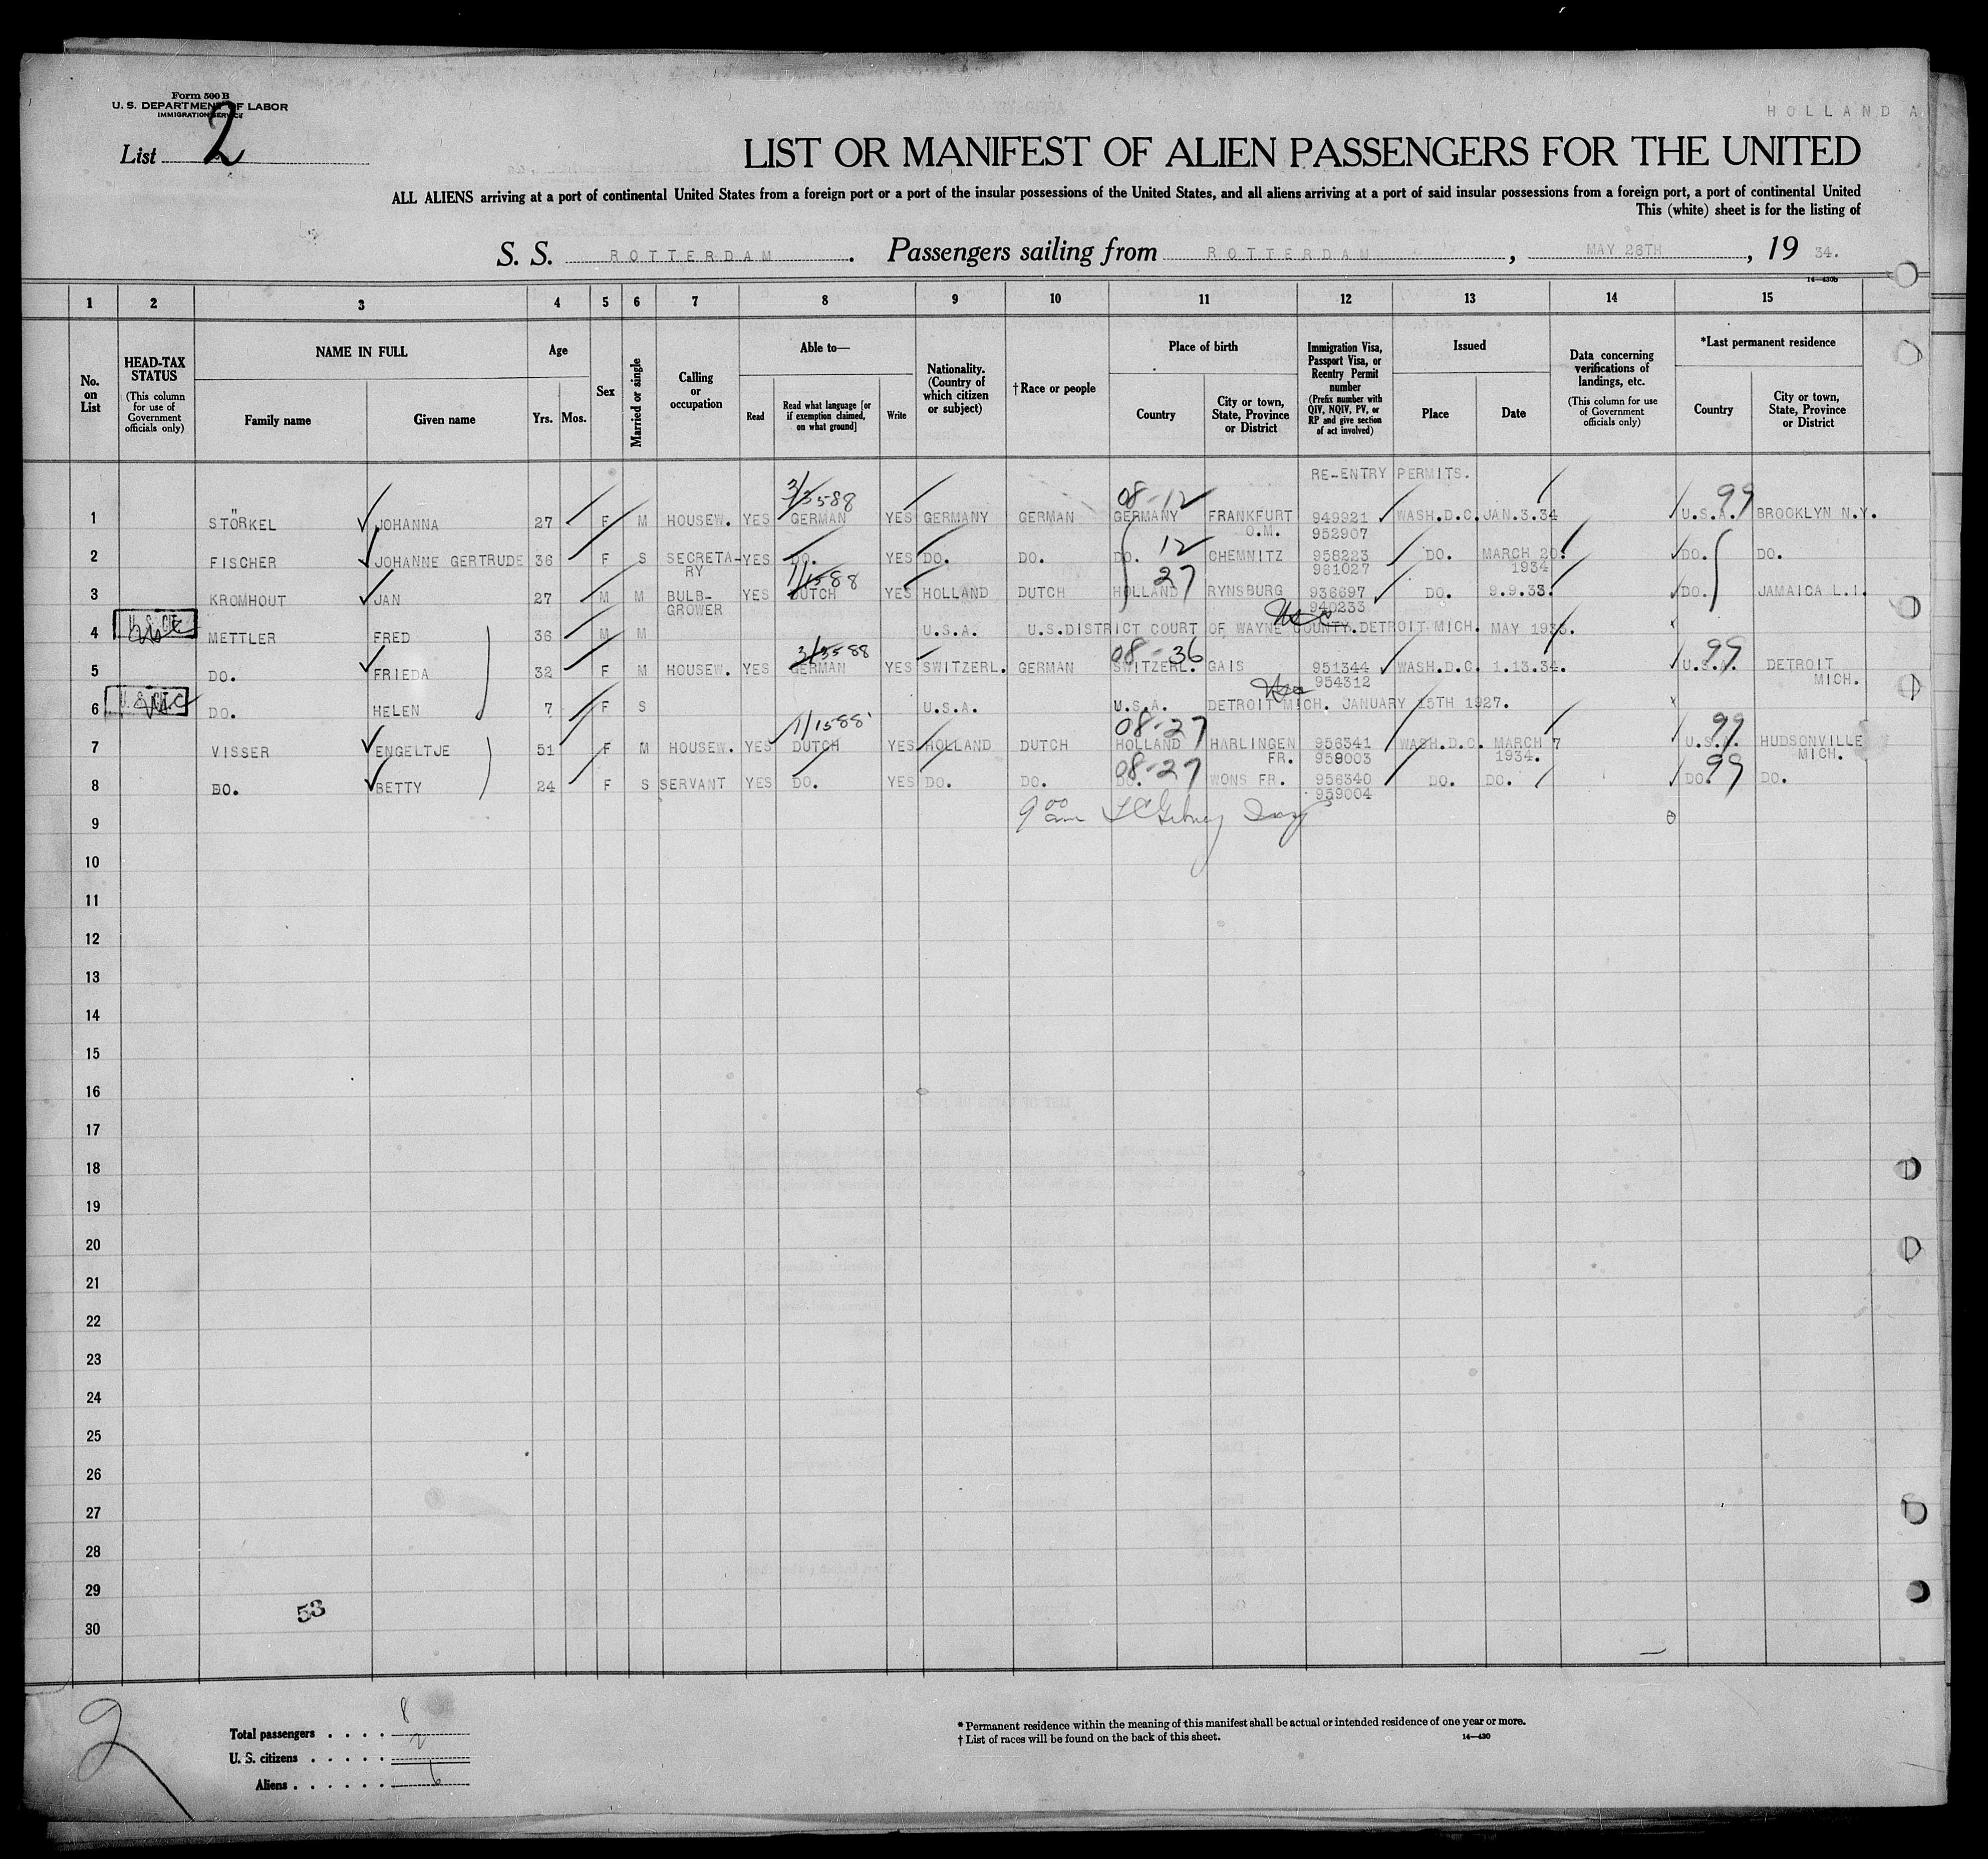 Form 500 B
U. S. DEPARTMENT OF LABOR
IMMIGRATION SERVICE
HOLLAND A
List 2
LIST OR MANIFEST OF ALIEN PASSENGERS FOR THE UNITED
ALL ALIENS arriving at a port of continental United States from a foreign port or a port of the insular possessions of the United States, and all aliens arriving at a port of said insular possessions from a foreign port, a port of continental United
This (white) sheet is for the listing of
S. S. ROTTERDAM. Passengers sailing from ROTTERDAM, MAY 26TH, 19 34.
14—430B
1 2 3 4 5 6 7 8 9 10 11 12 13 14 15
No. on List
HEAD-TAX STATUS (This column for use of Government officials only)
NAME IN FULL
Family name
Given name
Age
Yrs.
Mos.
Sex
Married or single
Calling or occupation
Able to—
Read
Read what language [or if exemption claimed, on what ground]
Write
Nationality. (Country of which citizen or subject)
† Race or people
Place of birth
Country
City or town, State, Province or District
Immigration Visa, Passport Visa, or Reentry Permit number (Prefix number with QIV, NQIV, PV, or RP and give section of act involved)
Issued
Place
Date
Data concerning verifications of landings, etc. (This column for use of Government officials only)
*Last permanent residence
Country
City or town, State, Province or District
RE-ENTRY PERMITS.
3/3588 08-12 99
1 STÖRKEL JOHANNA 27 F M HOUSEW. YES GERMAN YES GERMANY GERMAN GERMANY FRANKFURT 949921 WASH.D.C. JAN.3.34 U.S.A. BROOKLYN N.Y.
O.M. 952907
12
2 FISCHER JOHANNE GERTRUDE 36 F S SECRETA- YES DO. YES DO. DO. DO. CHEMNITZ 958223 DO. MARCH 20. DO. DO.
RY 961027 1934
1/1588 27
3 KROMHOUT JAN 27 M M BULB- YES DUTCH YES HOLLAND DUTCH HOLLAND RYNSBURG 936697 DO. 9.9.33. DO. JAMAICA L.I.
GROWER 940233
U.S. CIT. USC
4 METTLER FRED 36 M M U.S.A. U.S.DISTRICT COURT OF WAYNE COUNTY.DETROIT MICH. MAY 1933.
3/3588 08-36 99
5 DO. FRIEDA 32 F M HOUSEW. YES GERMAN YES SWITZERL. GERMAN SWITZERL. GAIS 951344 WASH.D.C. 1.13.34. U.S.A. DETROIT
954312 MICH.
U. S. CIT. USC
6 DO. HELEN 7 F S U.S.A. U.S.A. DETROIT MICH. JANUARY 15TH 1927.
1/1588 08-27 99
7 VISSER ENGELTJE 51 F M HOUSEW. YES DUTCH YES HOLLAND DUTCH HOLLAND HARLINGEN 956341 WASH.D.C. MARCH 7 U.S.A. HUDSONVILLE
FR. 959003 1934. MICH.
08-27 99
8 DO. BETTY 24 F S SERVANT YES DO. YES DO. DO. DO. WONS FR. 956340 DO. DO. DO. DO.
959004
9 9 00 am
10
11
12
13
14
15
16
17
18
19
20
21
22
23
24
25
26
27
28
29
53
30
2
Total passengers . . . . 8
U. S. citizens . . . . . 2
Aliens . . . . . . 6
* Permanent residence within the meaning of this manifest shall be actual or intended residence of one year or more.
† List of races will be found on the back of this sheet.
14—430